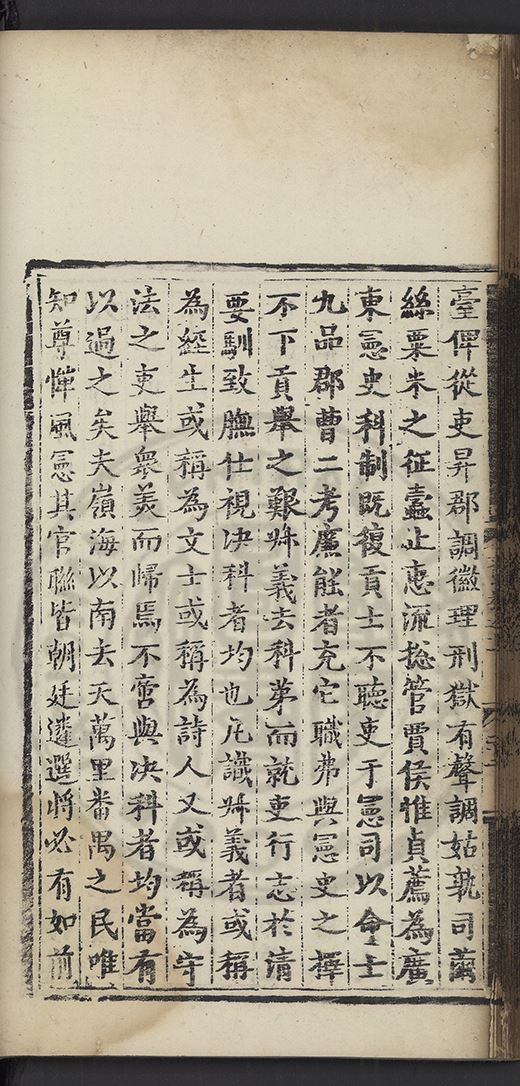 臺俾從吏昇郡調徽理刑獄有聲調姑孰司繭
絲粟米之征蠹止惠流捴管賈侯惟貞薦為廣
東憲史科制既復貢士不聽吏于憲司以命士
九品郡曹二考廉能者充它職弗與憲史之擇
不下貢舉之艱舜義去科第而就吏行志於清
要馴致膴仕視决科者均也凡識舜義者或稱
為經生或稱為文士或稱為詩人又或稱為守
法之吏舉衆美而歸焉不啻與决科者均當有
以過之矣夫嶺海以南去天萬里番禺之民唯
知尊憚風憲其官聯皆朝廷遴選將必有如前